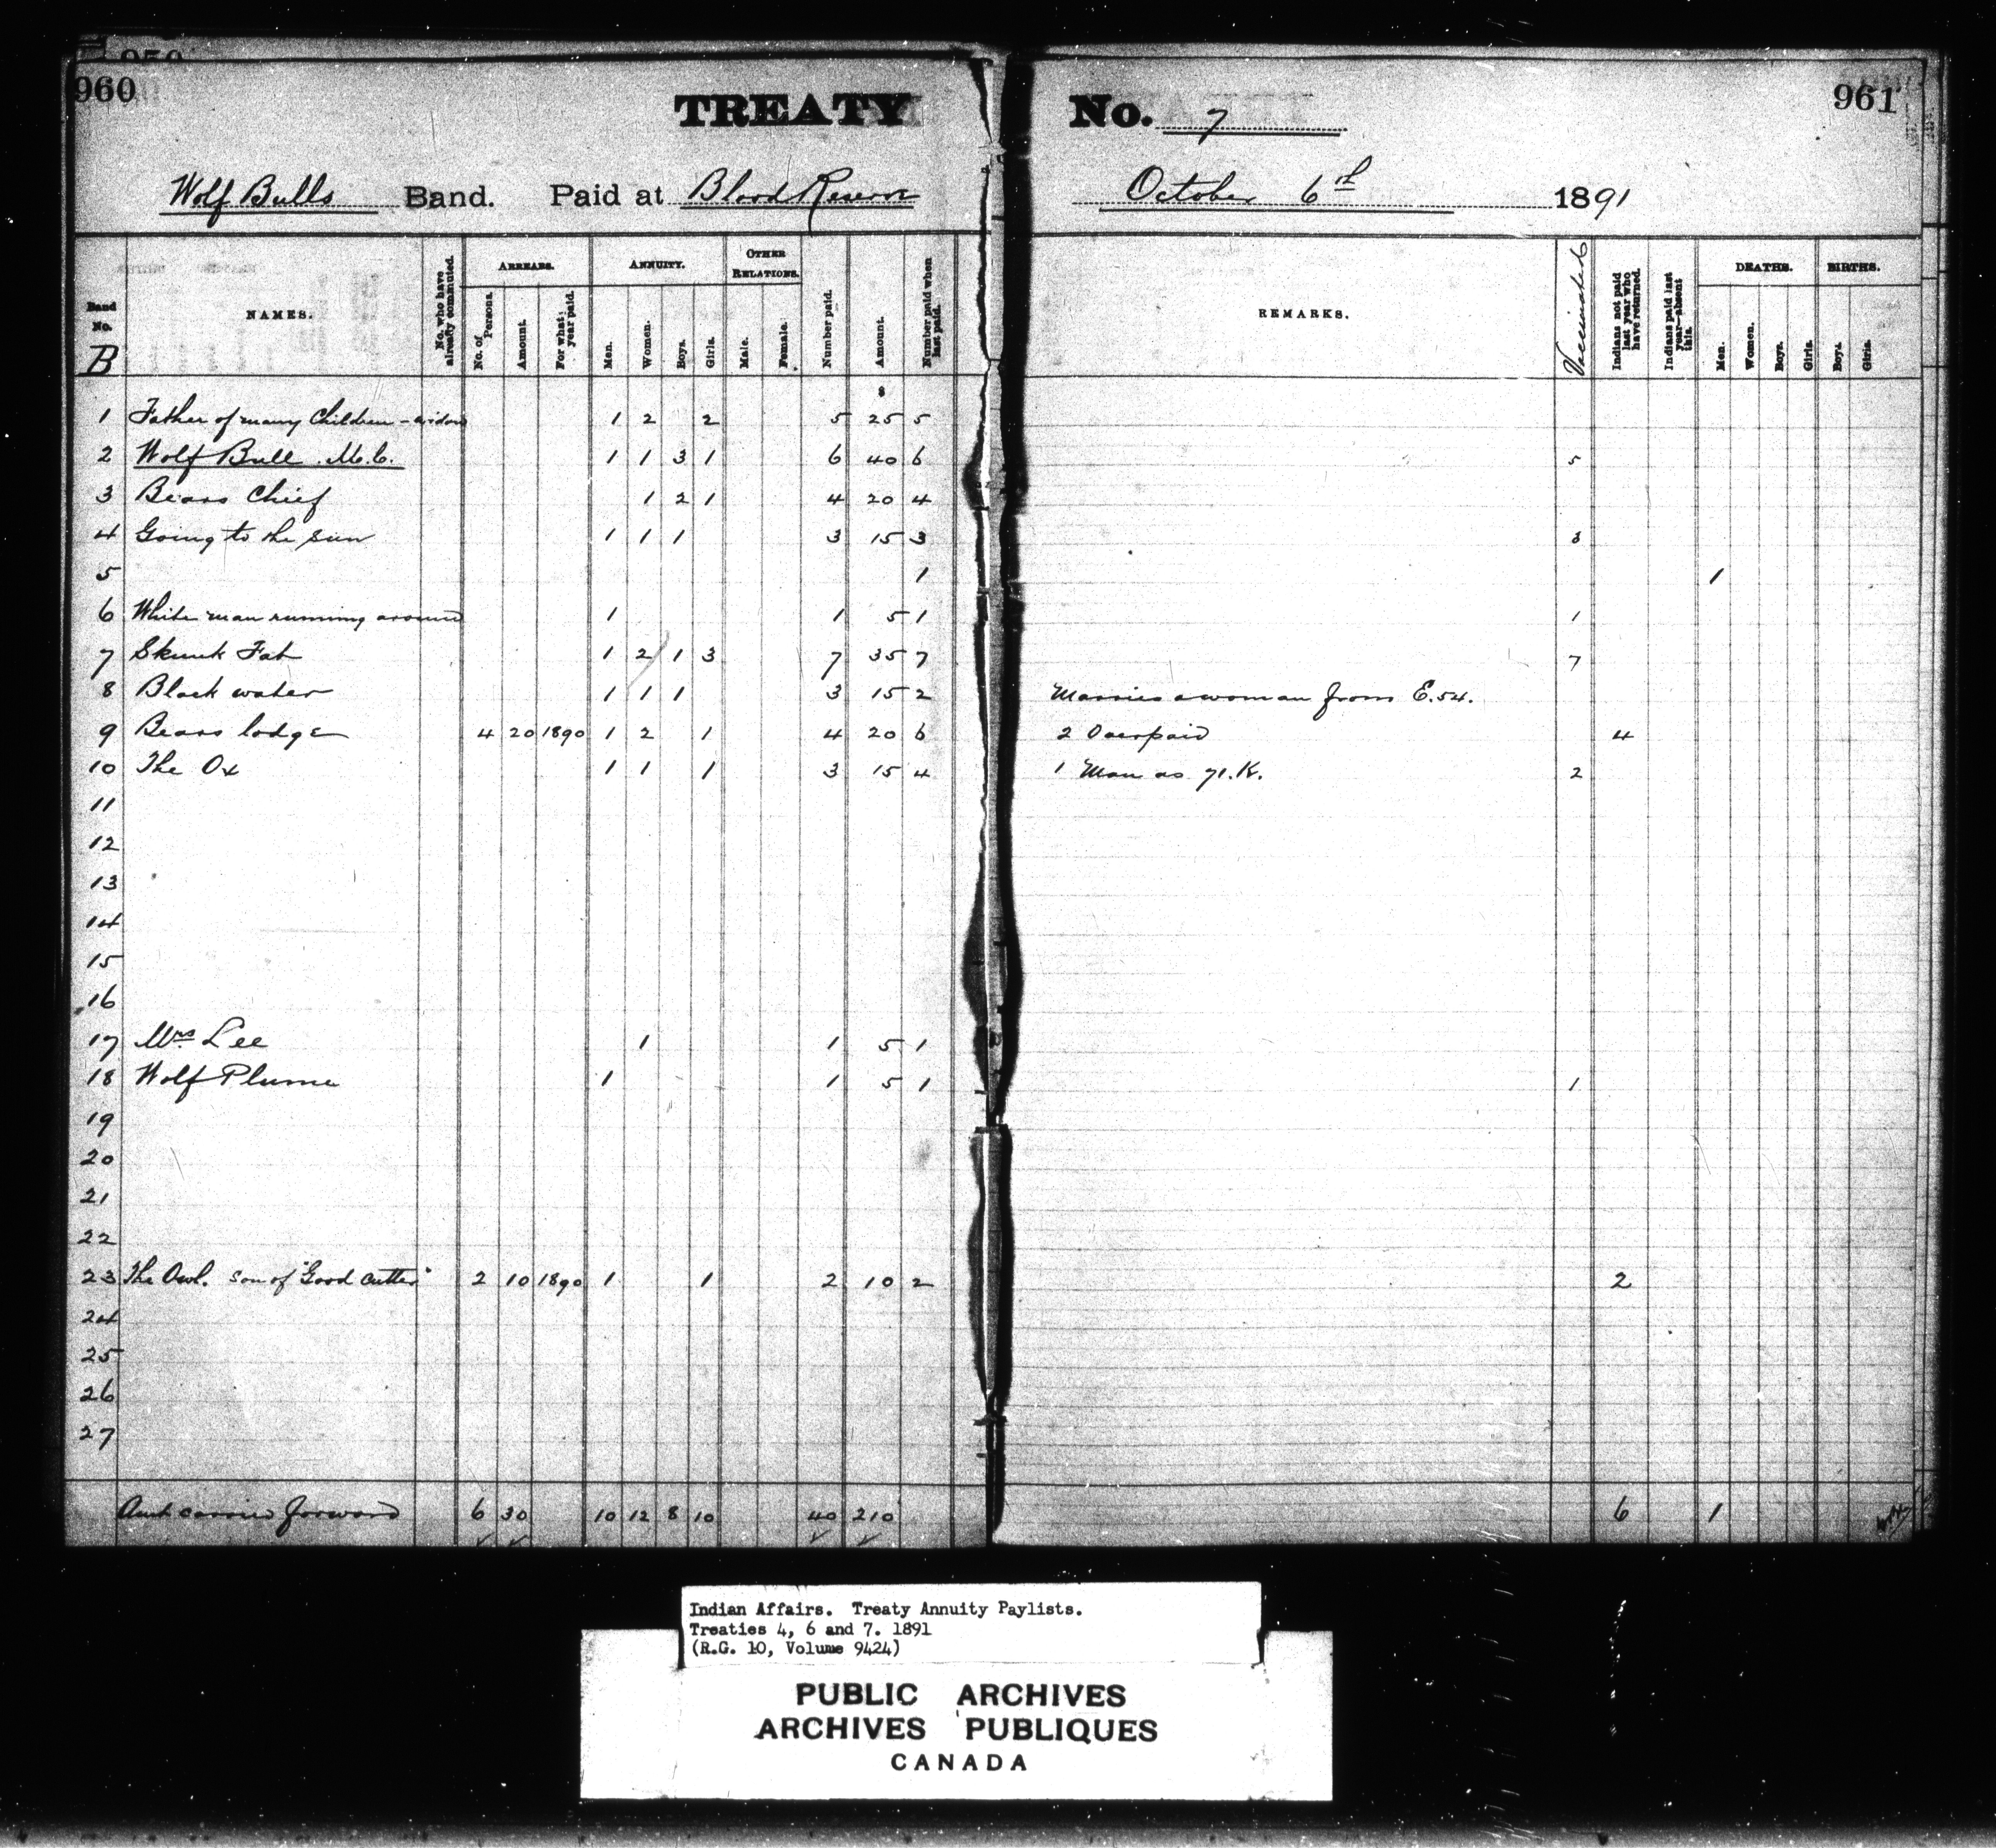 960
961
TREATY No. 7
Wolf Bulls Band. Paid at Blood Reserve October 6th 1891
Band No. B
NAMES.
No. who have already commuted.
ARREARS.
No. of Persons.
Amount.
For what year paid.
ANNUITY.
Men.
Women.
Boys.
Girls.
OTHER RELATIONS.
Male.
Female.
Number paid.
Amount.
Number paid when last paid.
REMARKS.
Vaccinated
Indians not paid last year who have returned.
Indians paid last year—absent this.
DEATHS.
Men.
Women.
Boys.
Girls.
BIRTHS.
Boys.
Girls.
$
1 Father of many Children - widow 1 2 2 5 25 5
2 Wolf Bull. M.C. 1 1 3 1 6 40 6 5
3 Bears Chief 1 2 1 4 20 4
4 Going to the Sun 1 1 1 3 15 3 3
5 1 1
6 White man running around 1 1 5 1 1
7 Skunk Fat 1 2 1 3 7 35 7 7
8 Black water 1 1 1 3 15 2 Marries a woman from E.54.
9 Bears lodge 4 20 1890 1 2 1 4 20 6 2 Overpaid 4
10 The Ox 1 1 1 3 15 4 1 Man as 71.K. 2
11
12
13
14
15
16
17 Mrs Lee 1 1 5 1
18 Wolf Plume 1 1 5 1 1
19
20
21
22
23 The Owl. son of "Good Cutter" 2 10 1890 1 1 2 10 2 2
24
25
26
27
Amt carried forward 6 30 10 12 8 10 40 210 6 1
Indian Affairs. Treaty Annuity Paylists.
Treaties 4, 6 and 7. 1891
(R.G. 10, Volume 9424)
PUBLIC ARCHIVES
ARCHIVES PUBLIQUES
CANADA